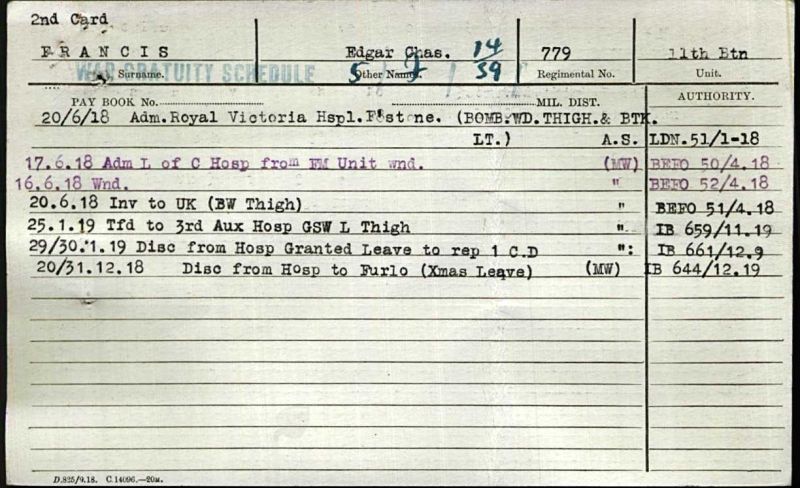 2nd Card
FRANCIS Edgar Chas. 14/59 779 11th Btn
WAR GRATUITY SCHEDULE
Surname. Other Names. Regimental No. Unit.
PAY BOOK No. MIL. DIST. AUTHORITY.
20/6/18 Adm.Royal Victoria Hspl. (BOMB.WD.THIGH.& BTK.
LT.) A.S. LDN.51/1-18
17.6.18 Adm L of C Hosp from FM Unit wnd. (MW) BEFO 50/4.18
16.6.18 Wnd. " BEFO 52/4.18
20.6.18 Inv to UK (BW Thigh) " BEFO 51/4.18
25.1.19 Tfd to 3rd Aux Hosp GSW L Thigh " IB 659/11.19
29/30.1.19 Disc from Hosp Granted Leave to rep 1 C.D ": IB 661/12.9
20/31.12.18 Disc from Hosp to Furlo (Xmas Leave) (MW) IB 644/12.19
D.825/9.18. C.14096.—20M.